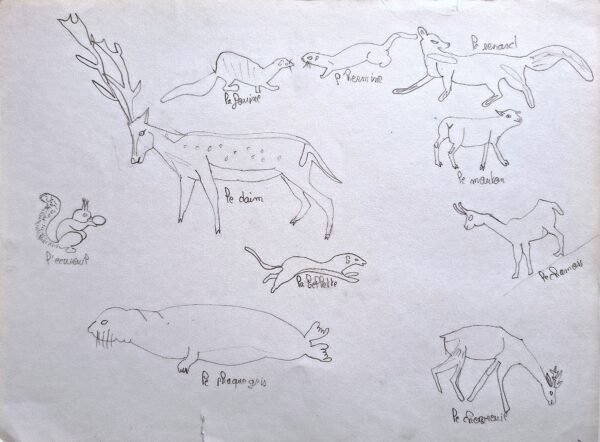 la fouine
l'hermine
le renard
le mouton
le daim
l'écureuil
le chamois
la belette
le phoque gris
le chevreuil